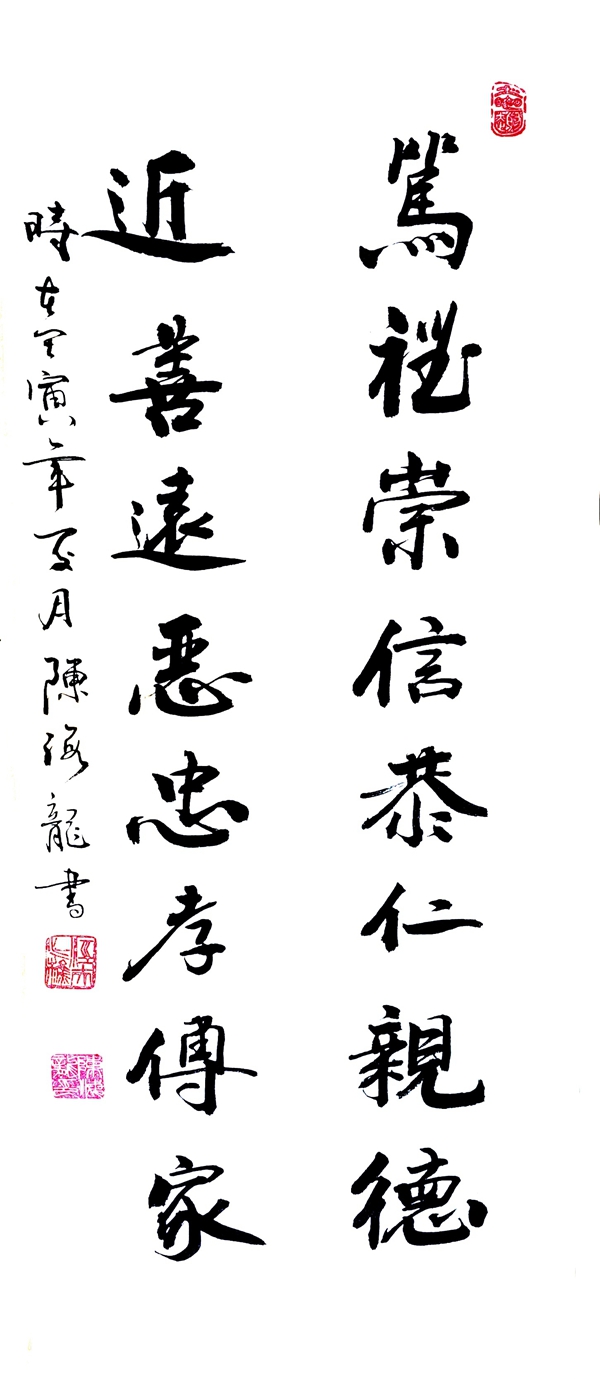 篤禮崇信恭仁親德
近善遠惡忠孝傳家
時在壬寅年夏月陳海龍書